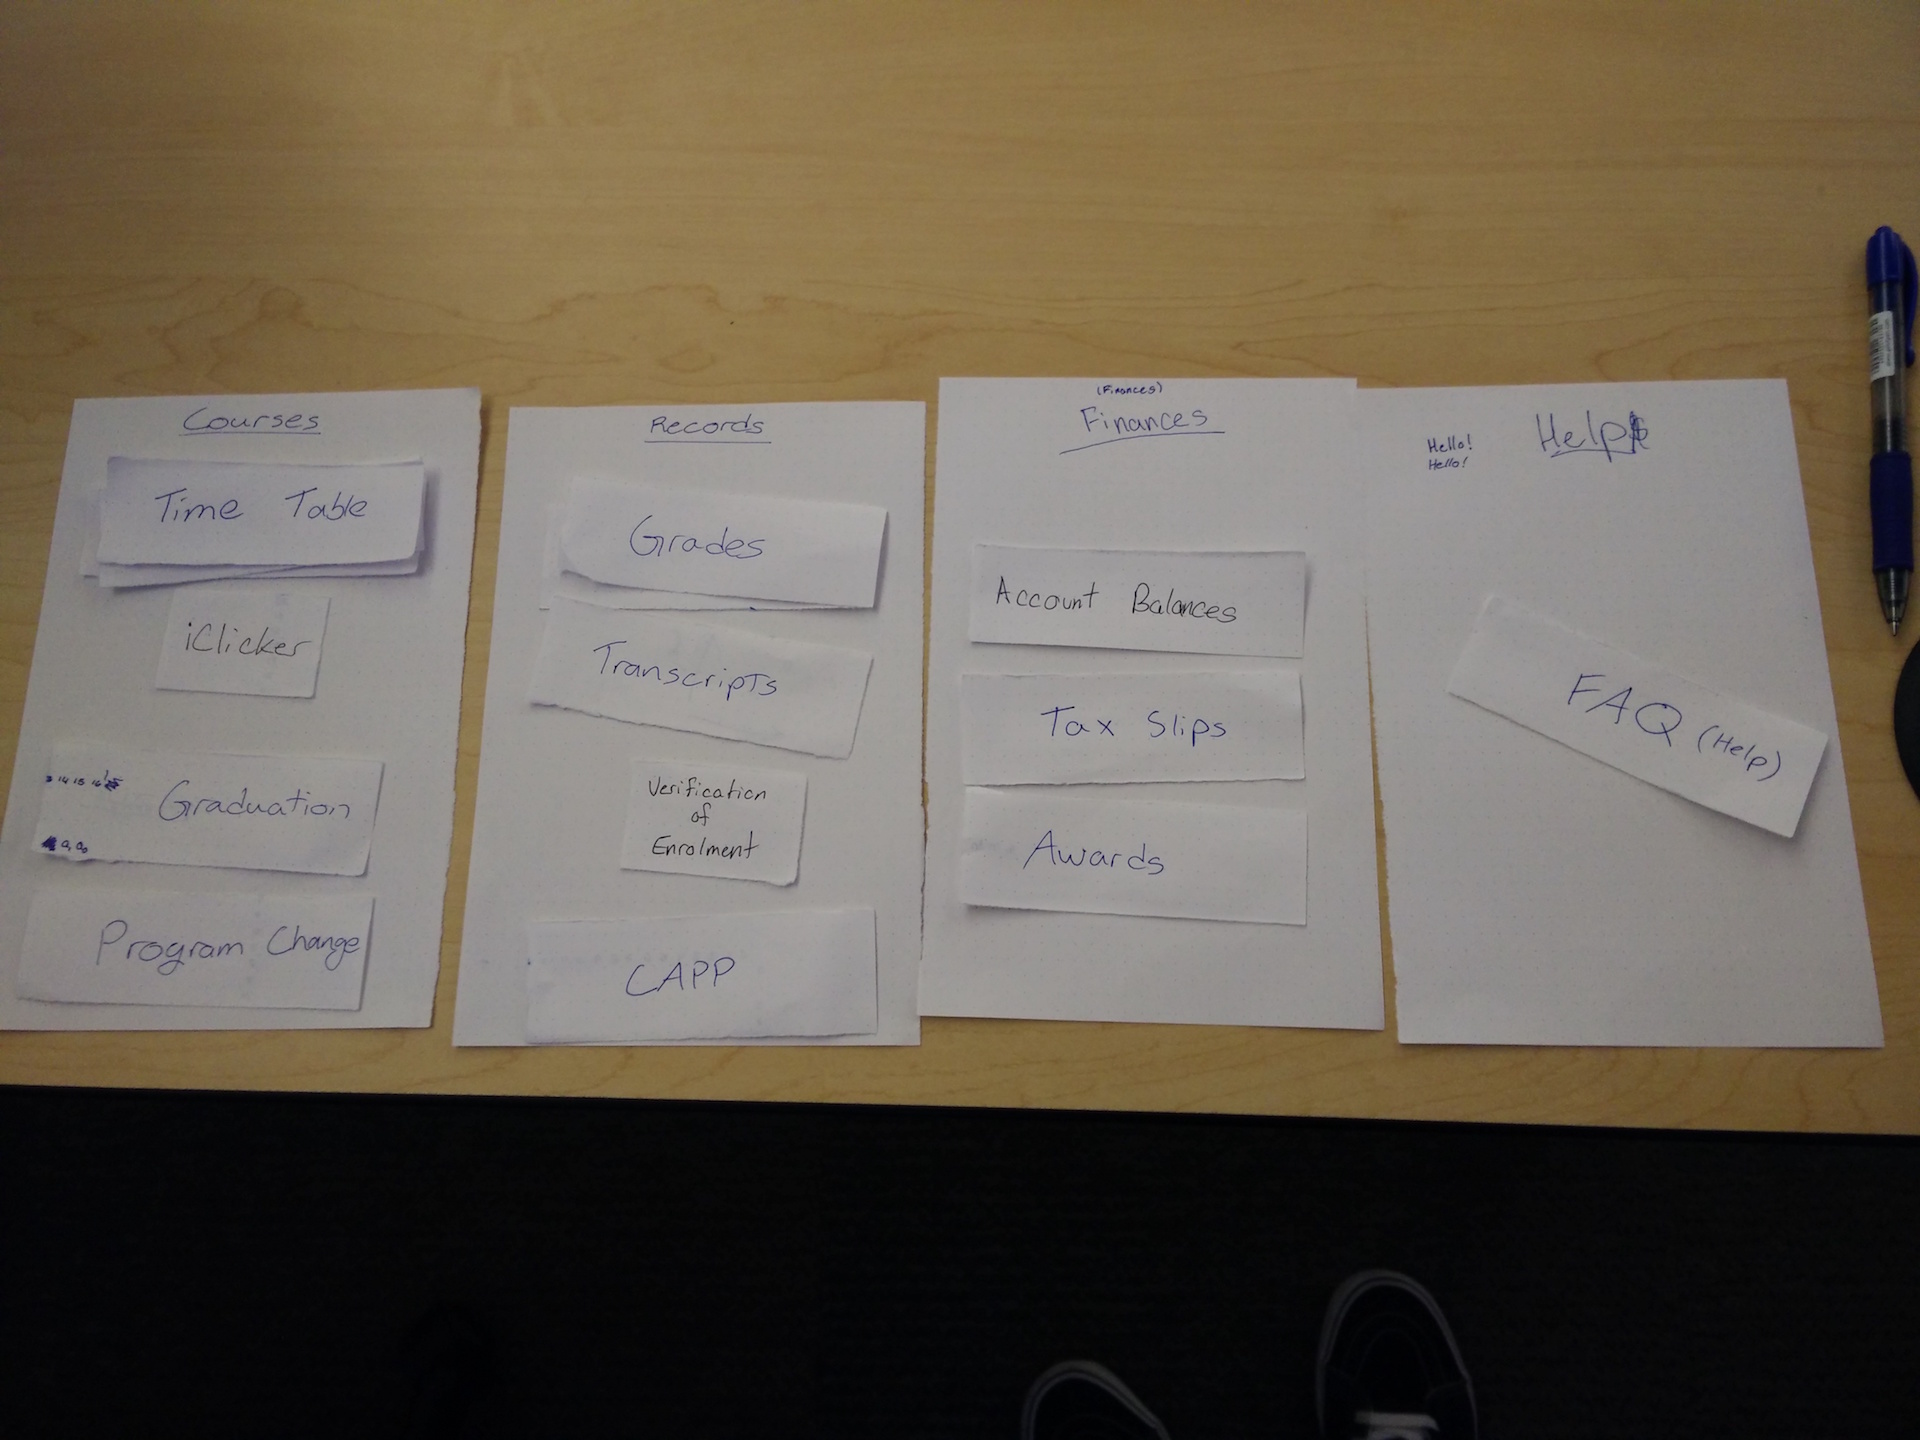 Courses
Time Table
iClicker
14 15 16
Graduation
Program Change
Records
Grades
Transcripts
Verification
of
Enrolment
CAPP
(Finances)
Finances
Account Balances
Tax Slips
Awards
Help
Hello!
Hello!
FAQ (Help)